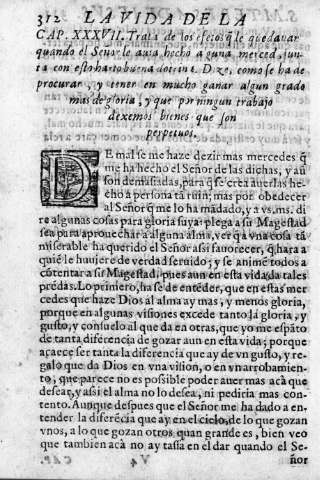 312 LA VIDA DE LA
CAP. XXXVII. Trata de los efetos q̃ le quedauan
quando el Señor le auia hecho alguna merced, jun-
ta con esto harto buena dotrina. Dize, como se ha de
procurar, y tener en mucho ganar algun grado
mas de gloria, y que por ningun trabajo
dexemos bienes que son
perpetuos.
DE mal se me haze dezir mas mercedes q̃
me ha hecho el Señor de las dichas, y aũ
son demasiadas, para q̃ se crea auerlas he-
cho a persona tã ruin; mas por obedecer
al Señor q̃ me lo ha mãdado, y a vs. ms. di
re algunas cosas para gloria suya: plega a su Magestad
sea para aprouechar a alguna alma, ver q̃ a vna cosa tã
miserable ha querido el Señor assi fauorecer, q̃ hara a
quiẽ le huuiere de verdad seruido; y se animẽ todos a
cõtentar a su Magestad, pues aun en esta vida da tales
prẽdas. Lo primero, ha se de entẽder, que en estas mer
cedes que haze Dios al alma ay mas, y menos gloria,
porque en algunas visiones excede tanto la gloria, y
gusto, y consuelo al que da en otras, que yo me espãto
de tanta diferencia de gozar aun en esta vida; porque
acaece ser tanta la diferencia que ay de vn gusto, y re-
galo que da Dios en vna vision, o en vn arrobamien-
to, que parece no es possible poder auer mas acà que
desear, y assi el alma no lo desea, ni pediria mas con-
tento. Aunque despues que el Señor me ha dado a en-
tender la diferẽcia que ay en el cielo, de lo que gozan
vnos, a lo que gozan otros quan grande es, bien veo
que tambien acà no ay tassa en el dar quando el Se-
ñor